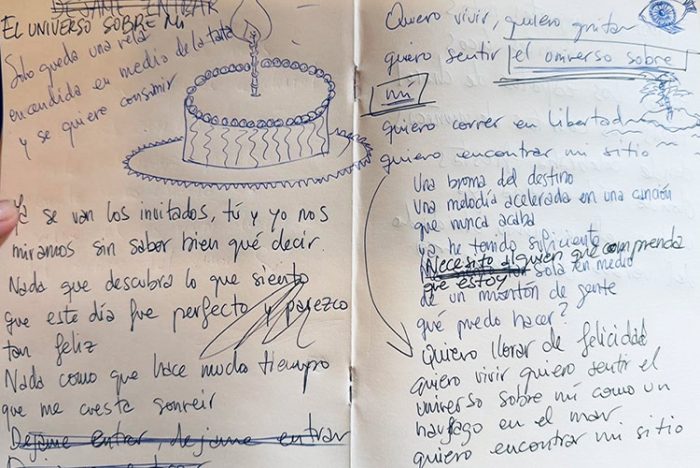 DEJAME ENTRAR
EL UNIVERSO SOBRE MÍ
Solo queda una vela
encendida en medio de la tarta
y se quiere consumir
Ya se van los invitados, tú y yo nos
miramos sin saber bien qué decir.
Nada que descubra lo que siento
que este día fue perfecto y parezco
tan feliz
Nada como que hace mucho tiempo
que me cuesta sonreir
Dejame entrar, dejame entrar
Quiero vivir, quiero gritar
quiero sentir el universo sobre
mí
quiero correr en libertad
quiero encontrar mi sitio
Una broma del destino
Una melodía acelerada en una canción
que nunca acaba
ya he tenido suficiente
Necesito alguien que comprenda
que estoy sola en medio
de un montón de gente
qué puedo hacer?
Quiero llorar de felicidad
quiero vivir quiero sentir el
universo sobre mí como un
naufrago en el mar
quiero encontrar mi sitio